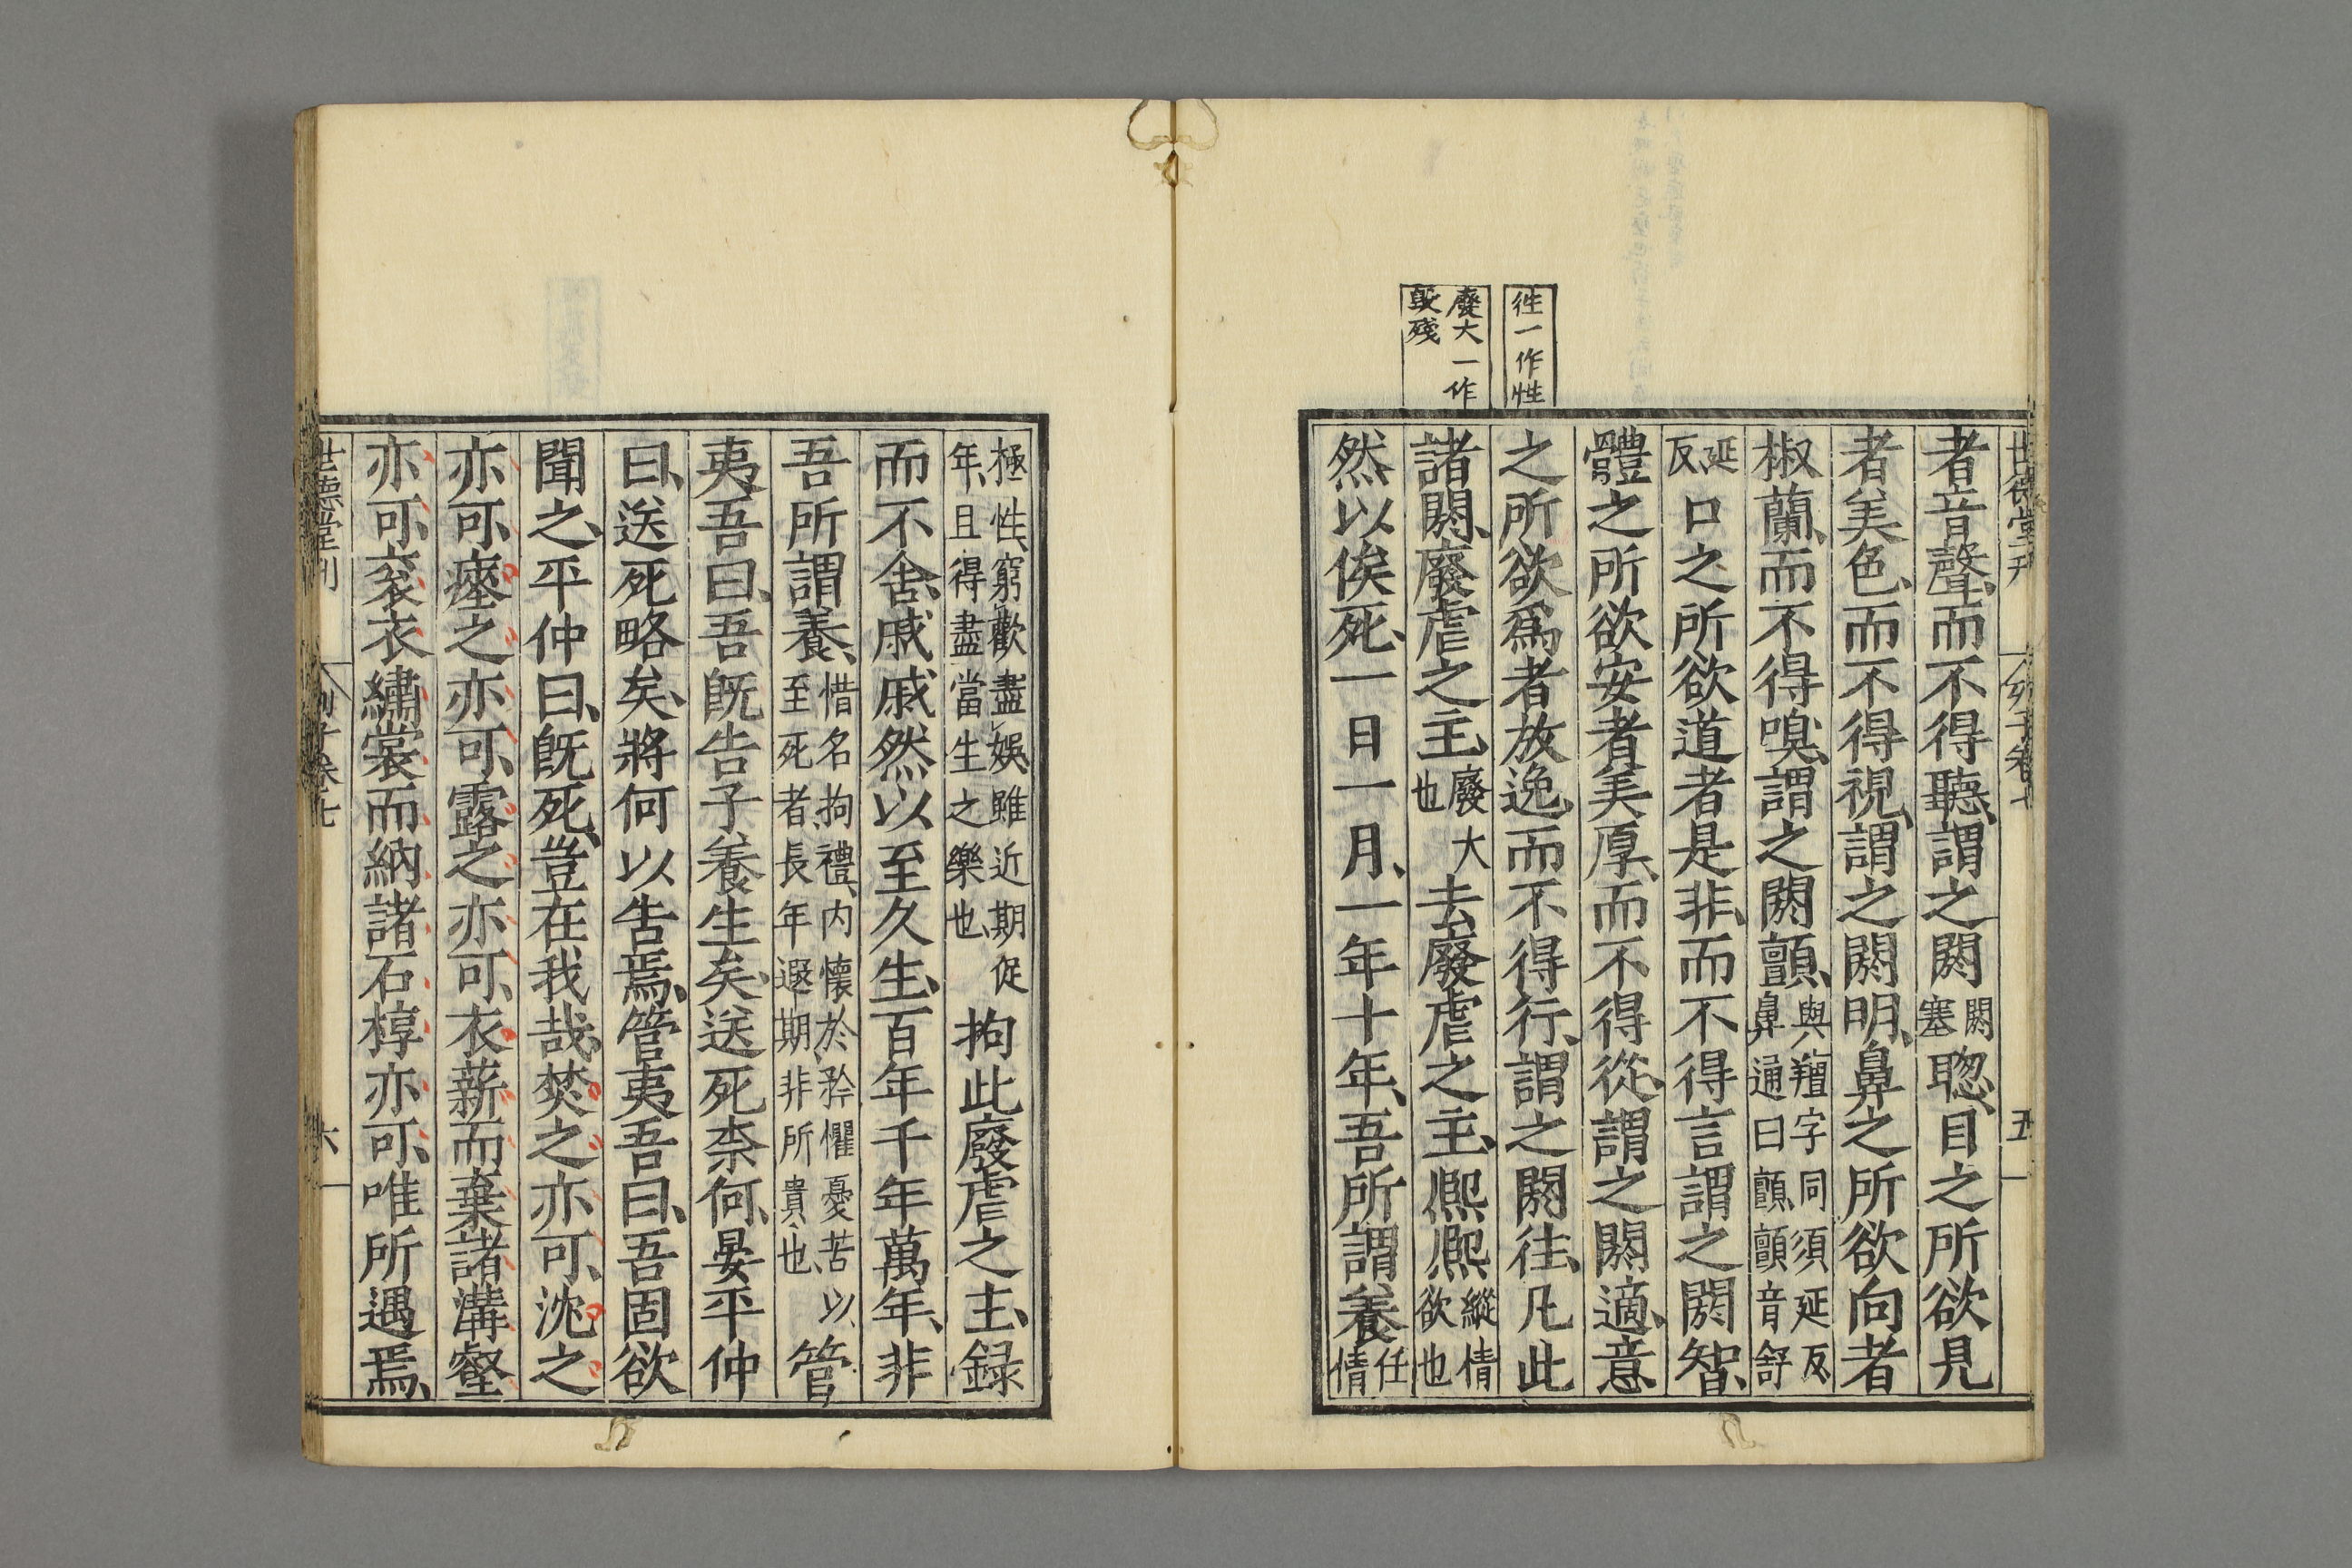 徃一作性
廢大一作
毀殘
者音聲、而不得聽、謂之閼閼塞聰、目之所欲見
者美色、而不得視、謂之閼明、鼻之所欲向者
椒蘭、而不得嗅、謂之閼顫、與羶字同須延反鼻通曰顫、顫音舒
延反口之所欲道者是非、而不得言謂之閼智、
體之所欲安者美厚、而不得從、謂之閼適、意
之所欲爲者放逸、而不得行、謂之閼徃、凡此
諸閼、廢虐之主廢大也去廢虐之主、熈熈縱情欲也
然以俟死、一日一月、一年十年、吾所謂養任情
極性、窮歡盡娛、雖近期促年、且得盡當生之樂也、拘此廢虐之主、録
而不舍、戚戚然以至久生、百年千年萬年、非
吾所謂養、惜名拘禮、内懷於矜懼憂苦以至死者、長年遐期、非所貴也、管
夷吾曰、吾既告子養生矣、送死柰何、晏平仲
曰、送死略矣、將何以告焉、管夷吾曰、吾固欲
聞之、平仲曰、既死、豈在我哉、焚之亦可、沈之
亦可、瘞之亦可、露之亦可、衣薪而棄諸溝壑
亦可、衮衣繡裳而納諸石椁亦可、唯所遇焉、
世德堂刊 列子卷七 六